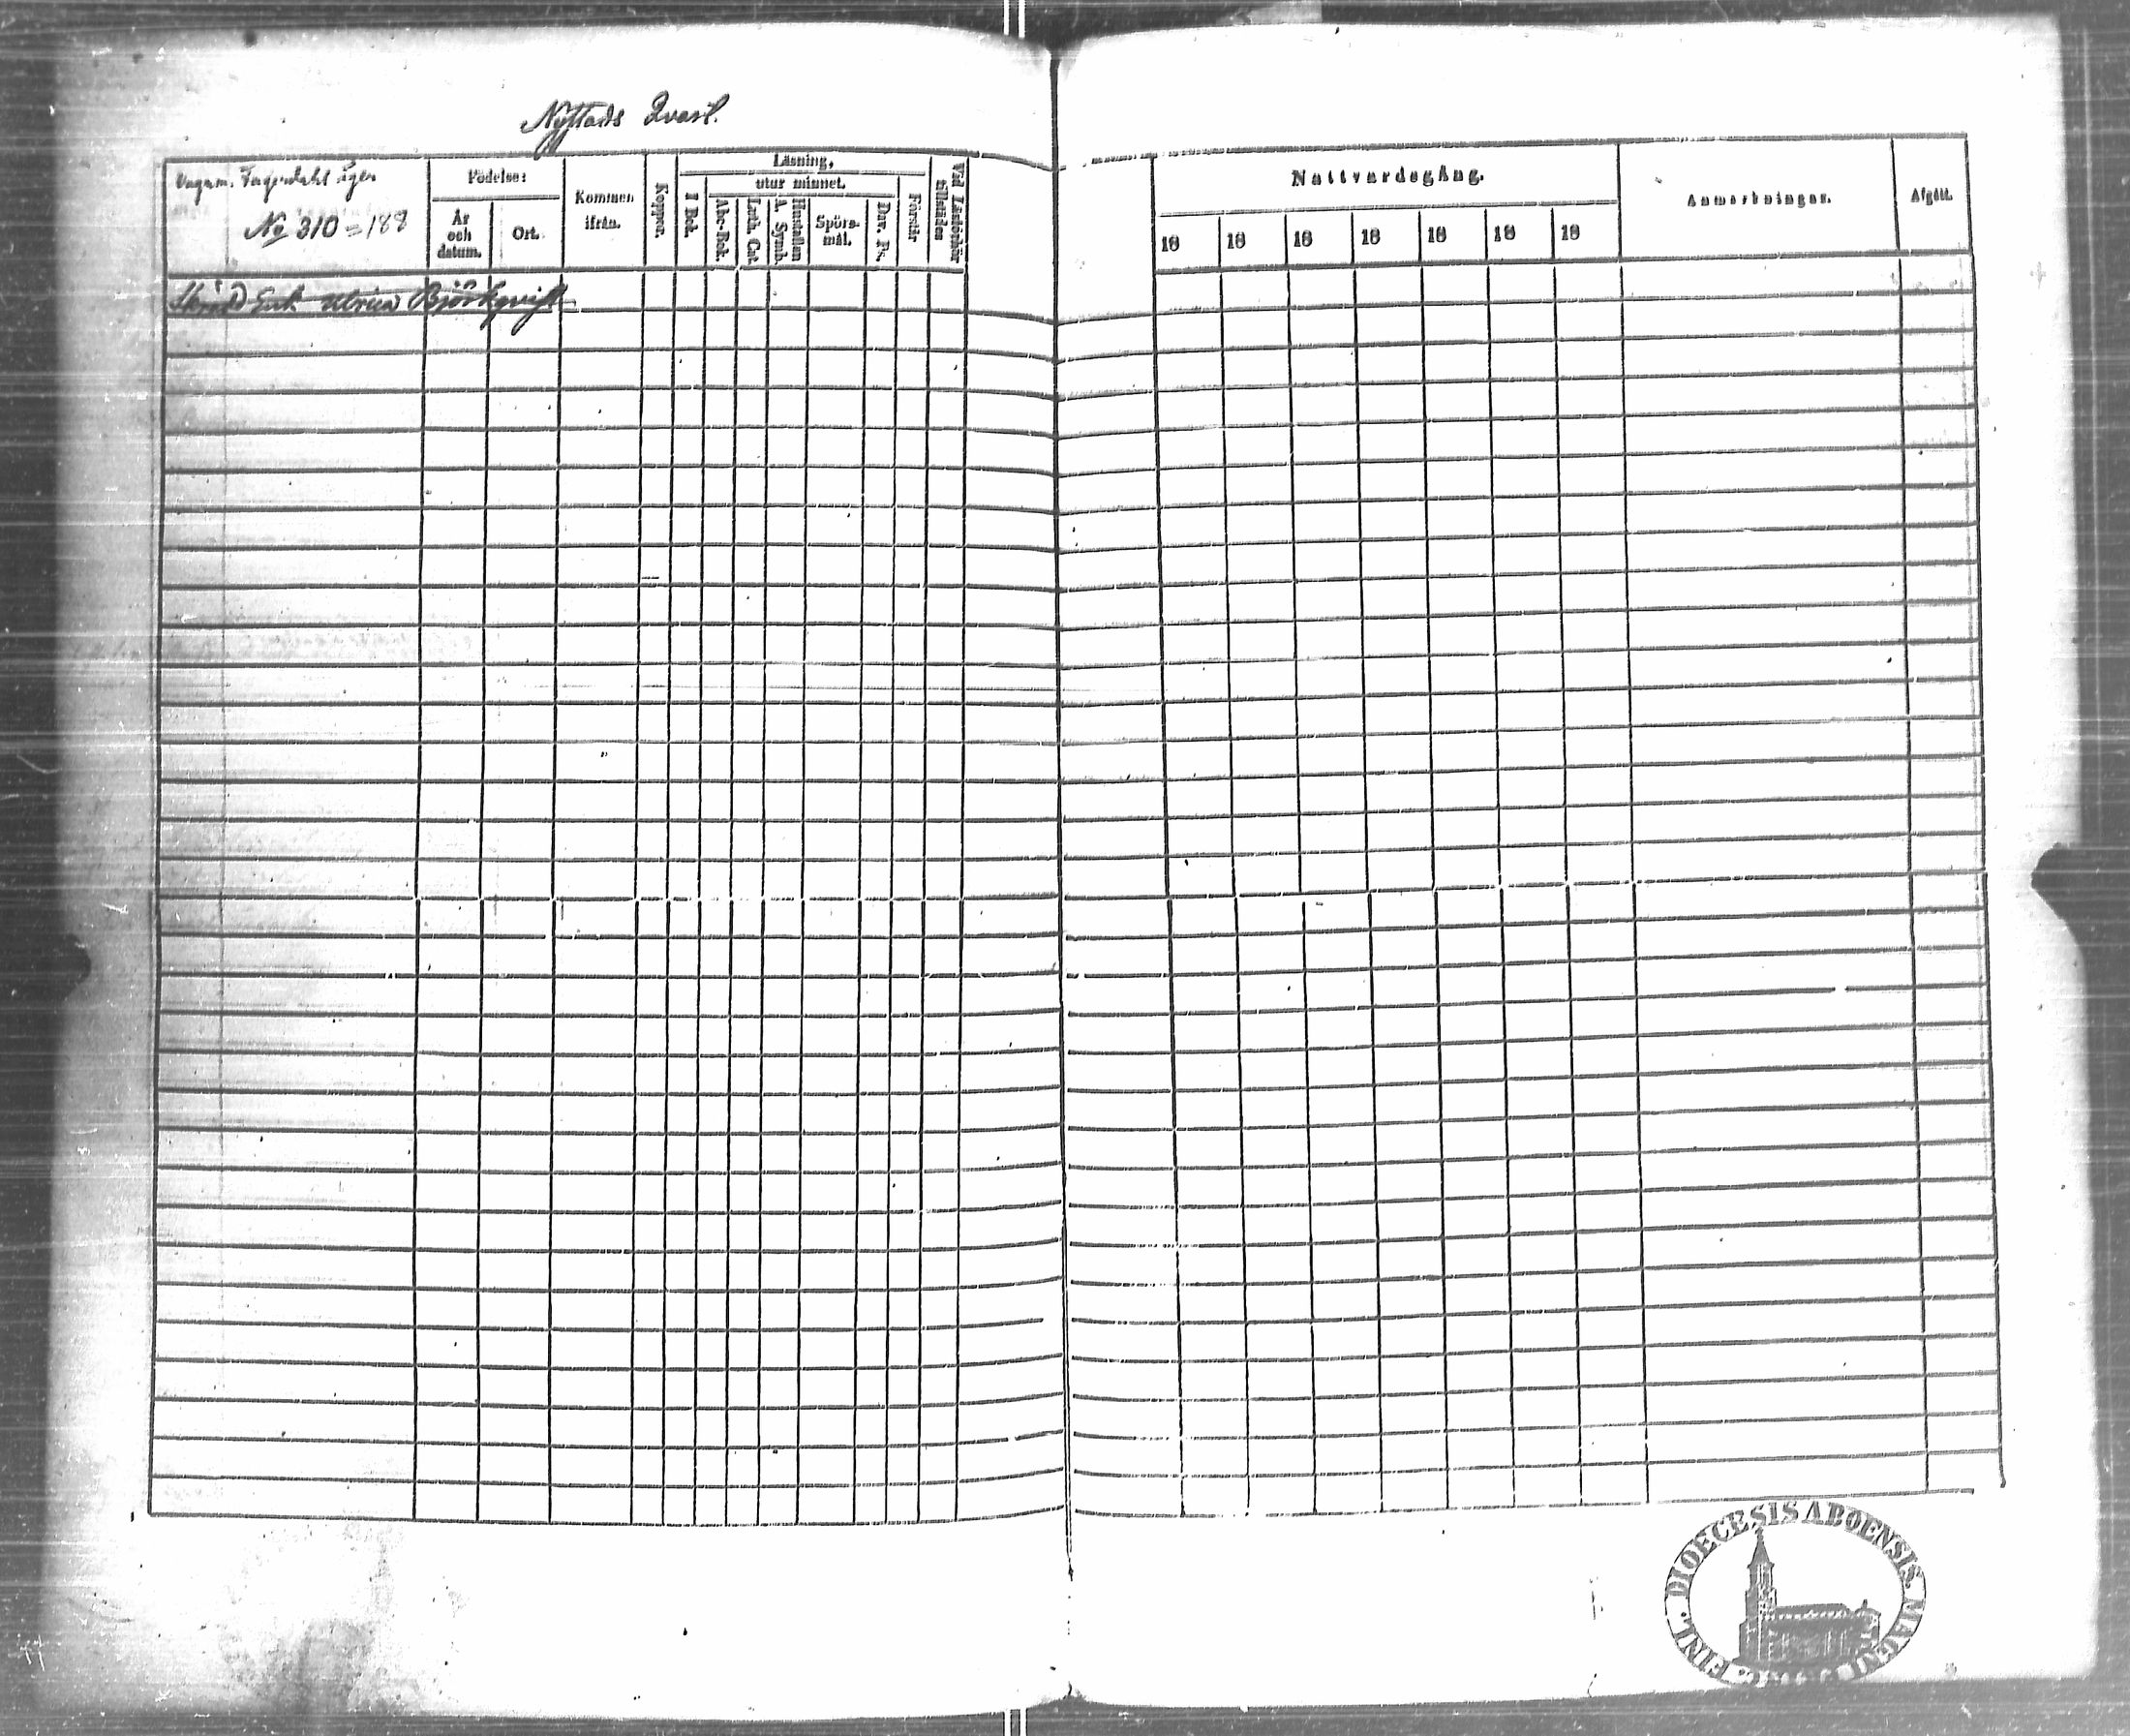 Nystads Qvarl.
Ungam. Fagerdahls ägor
No 310 = 188
Födelse:
År och datum.
Ort.
Kommen ifrån.
Koppor.
Läsning,
I Bok.
utur minnet.
Abc-Bok.
Luth. Cat.
A. Symb.
Hustaflan
Spörsmål.
Dav. Ps.
Förstår
Vid Läsförhör tillstädes
Nattvardsgång.
18 18 18 18 18 18 18
Anmärkningar.
Afgått.
Enk Ulrica Björkqvist
FINL. DIOECESIS ABOENSIS. MAGNI